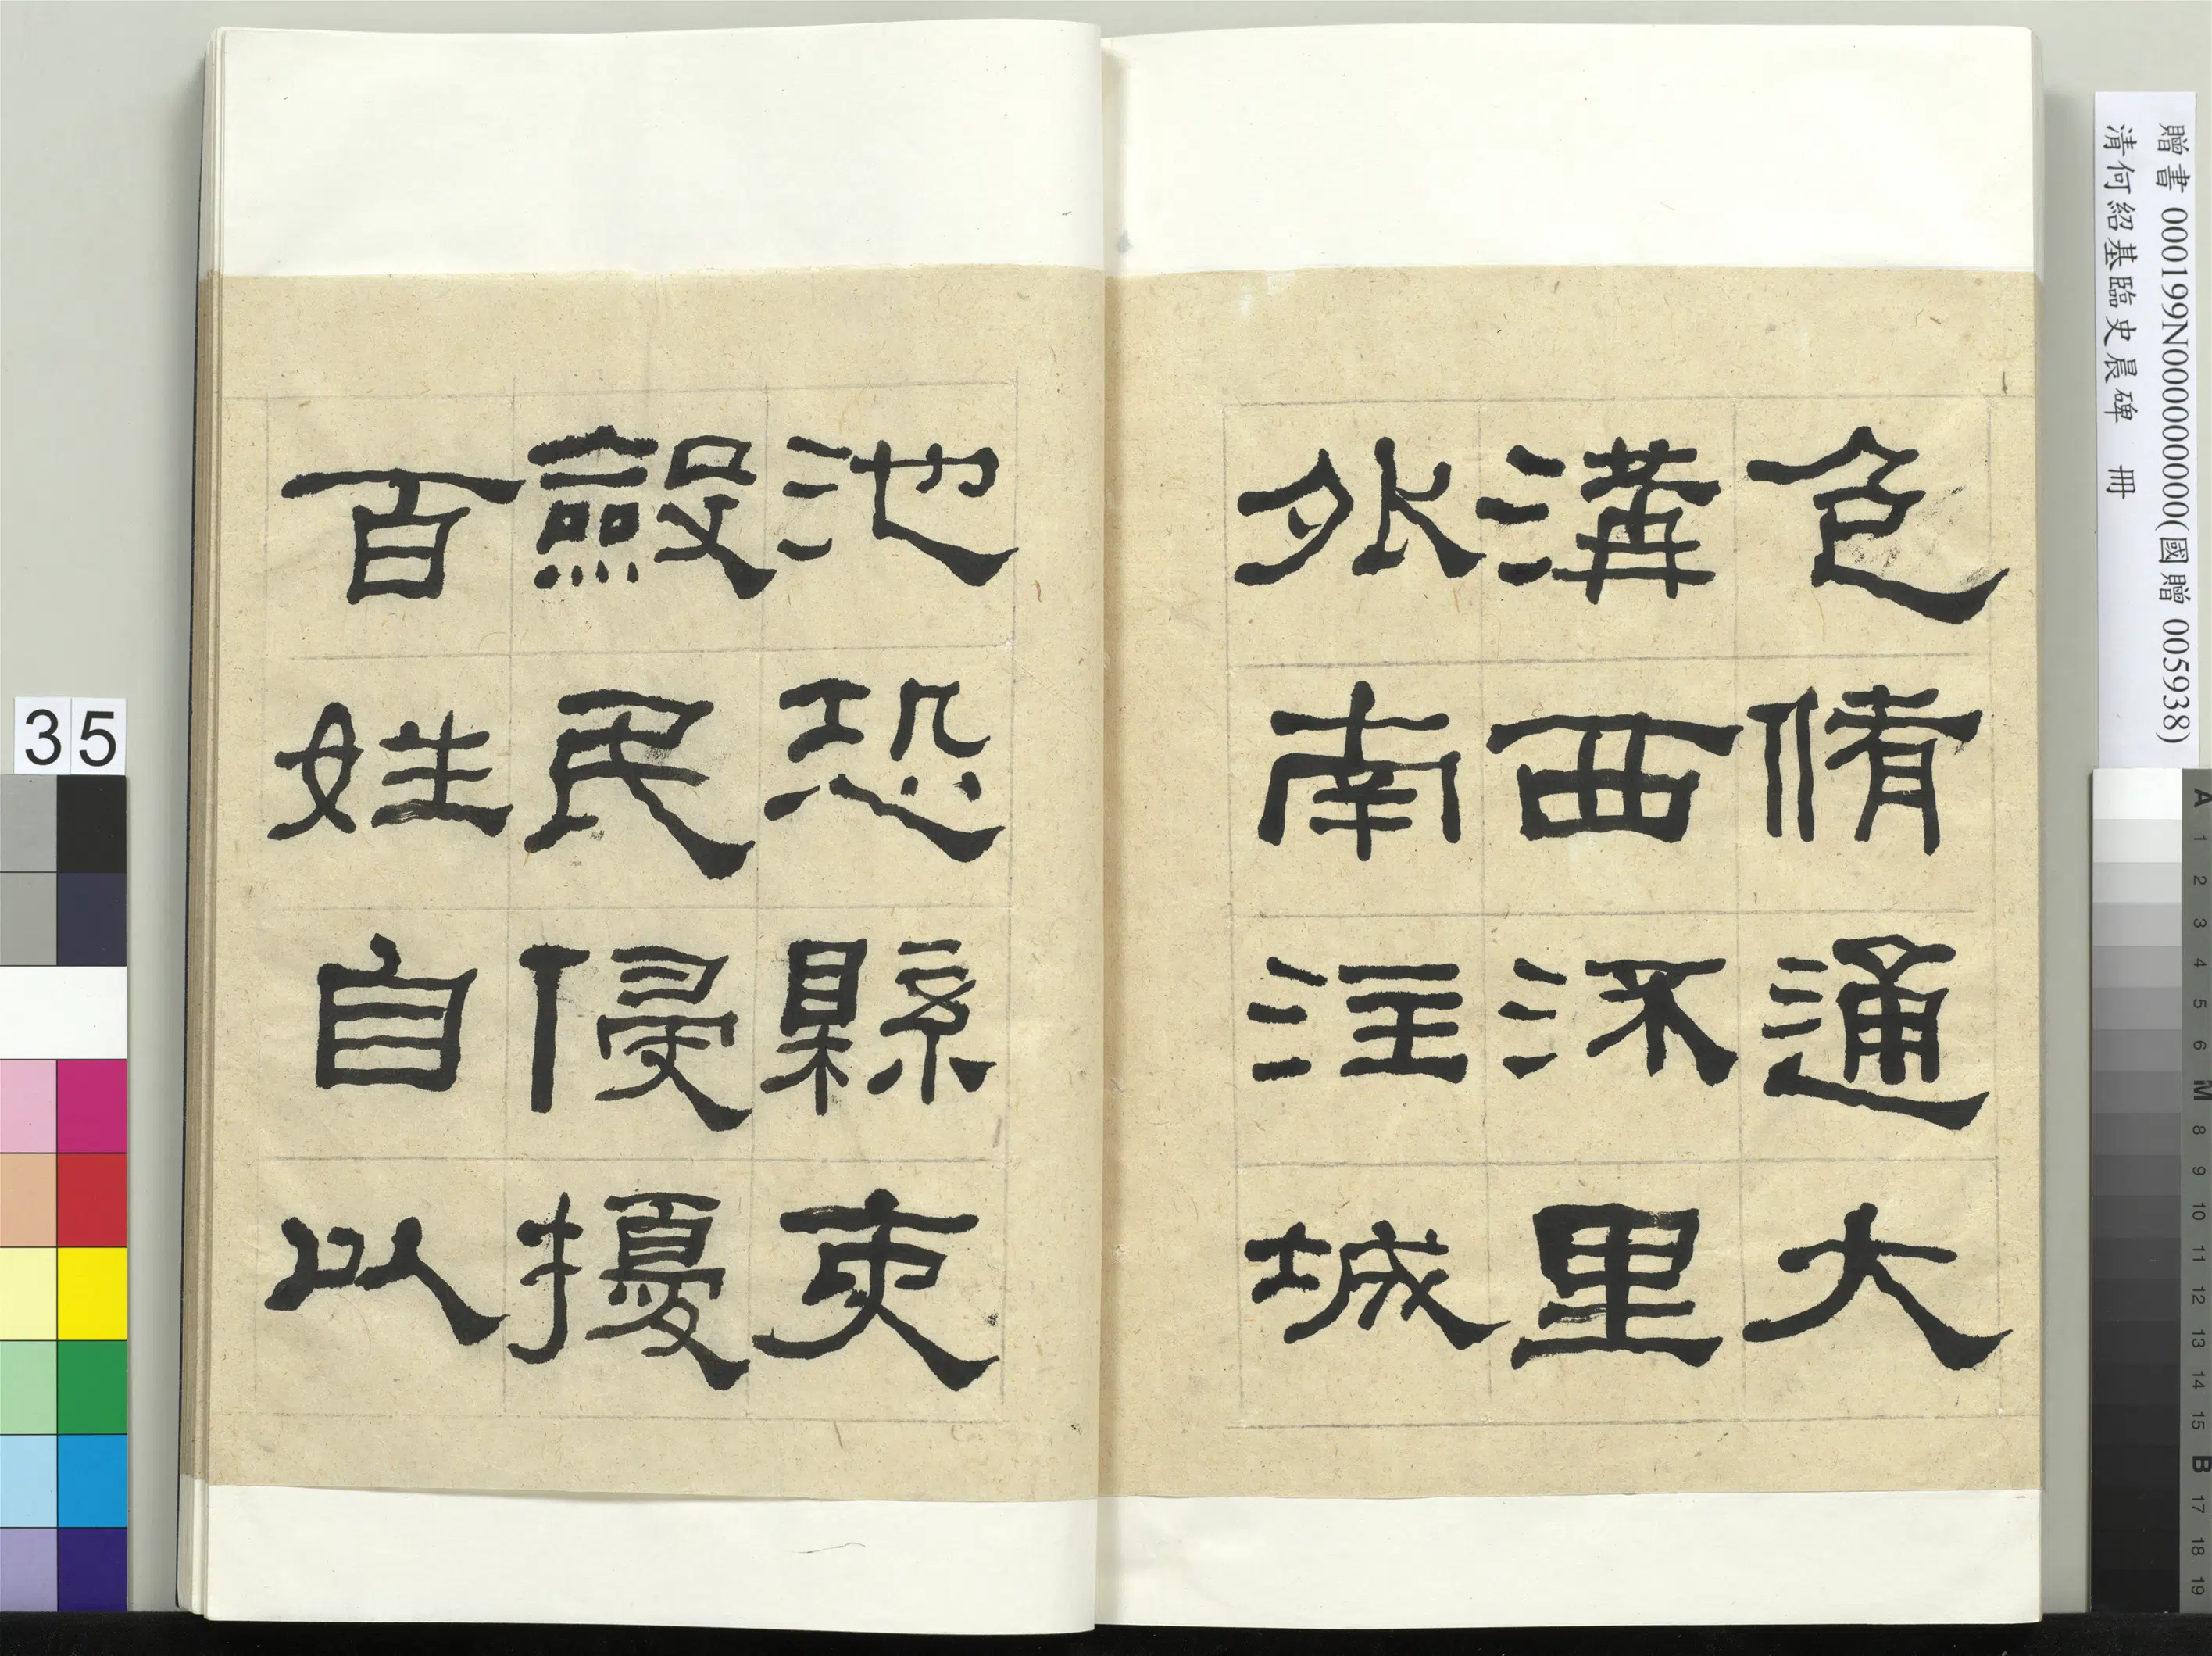 色脩通大
溝西流里
外南注城
池恐縣吏
斂民侵擾
百姓自以
贈書 000199N000000000(國贈 005938)
清何紹基臨史晨碑 冊
35
A 1 2 3 4 5 6 M 8 9 10 11 12 13 14 15 B 17 18 19